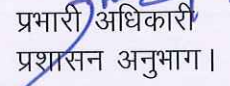 प्रभारी अधिकारी
प्रशासन अनुभाग।